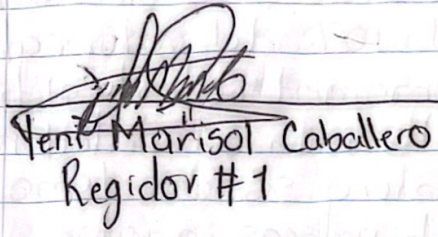 Yeni Marisol Caballero
Regidor #1